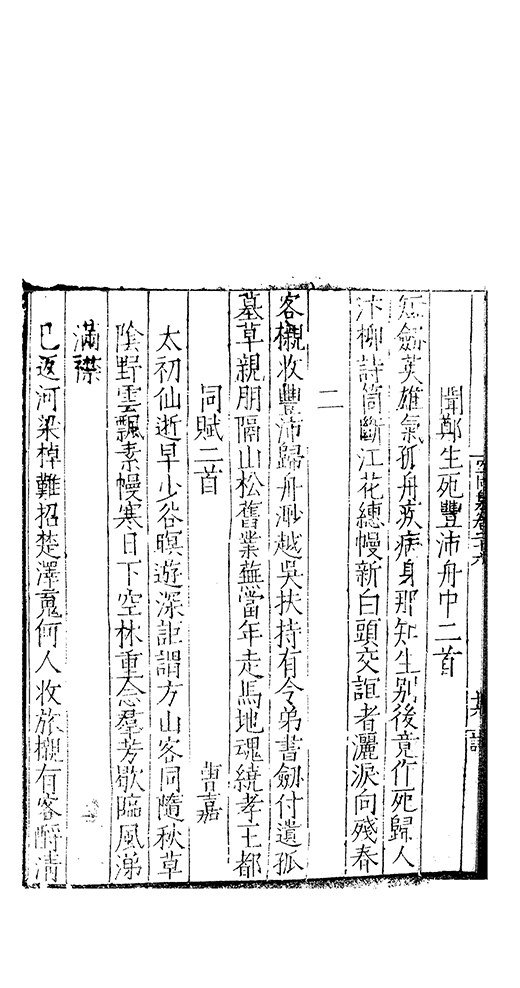 聞鄭生死豐沛舟中二首
短劔英雄氣孤舟疾病身那知生別後竟作死歸人
汴柳詩筒斷江花繐幔新白頭交誼者灑淚向殘春
二
客櫬收豐沛歸舟渺越吳扶持有令弟書劔付遺孤
墓草親朋隔山松舊業蕪當年走馬地魂繞孝王都
同賦二首 曹嘉
太初仙逝早少谷暝遊深詎謂方山客同隨秋草
陰野雲飄素幔寒日下空林重念羣芳歇臨風涕
滿襟
已返河梁棹難招楚澤䰟何人收旅櫬有客酹清